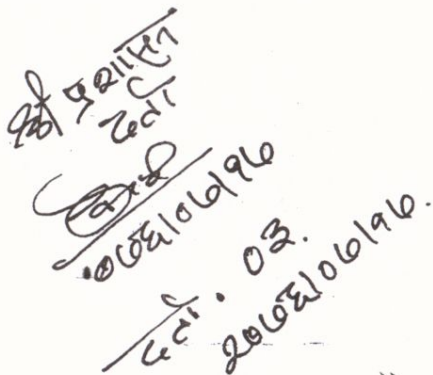 श्री प्रशासन
दर्ता
०७६|०७|१७
दर्ता. ०३.
२०७६|०७|१७.